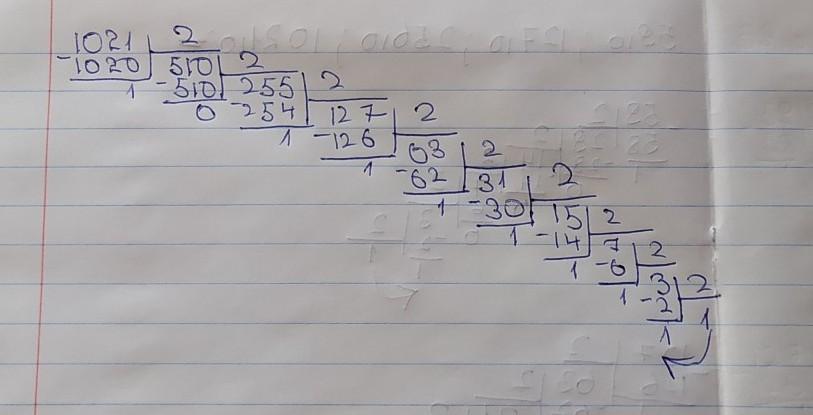 1021 2
-1020 510 2
1 -510 255 2
0 -254 127 2
1 -126 63 2
1 -62 31 2
1 -30 15 2
1 -14 7 2
1 -6 3 2
1 -2 1
1